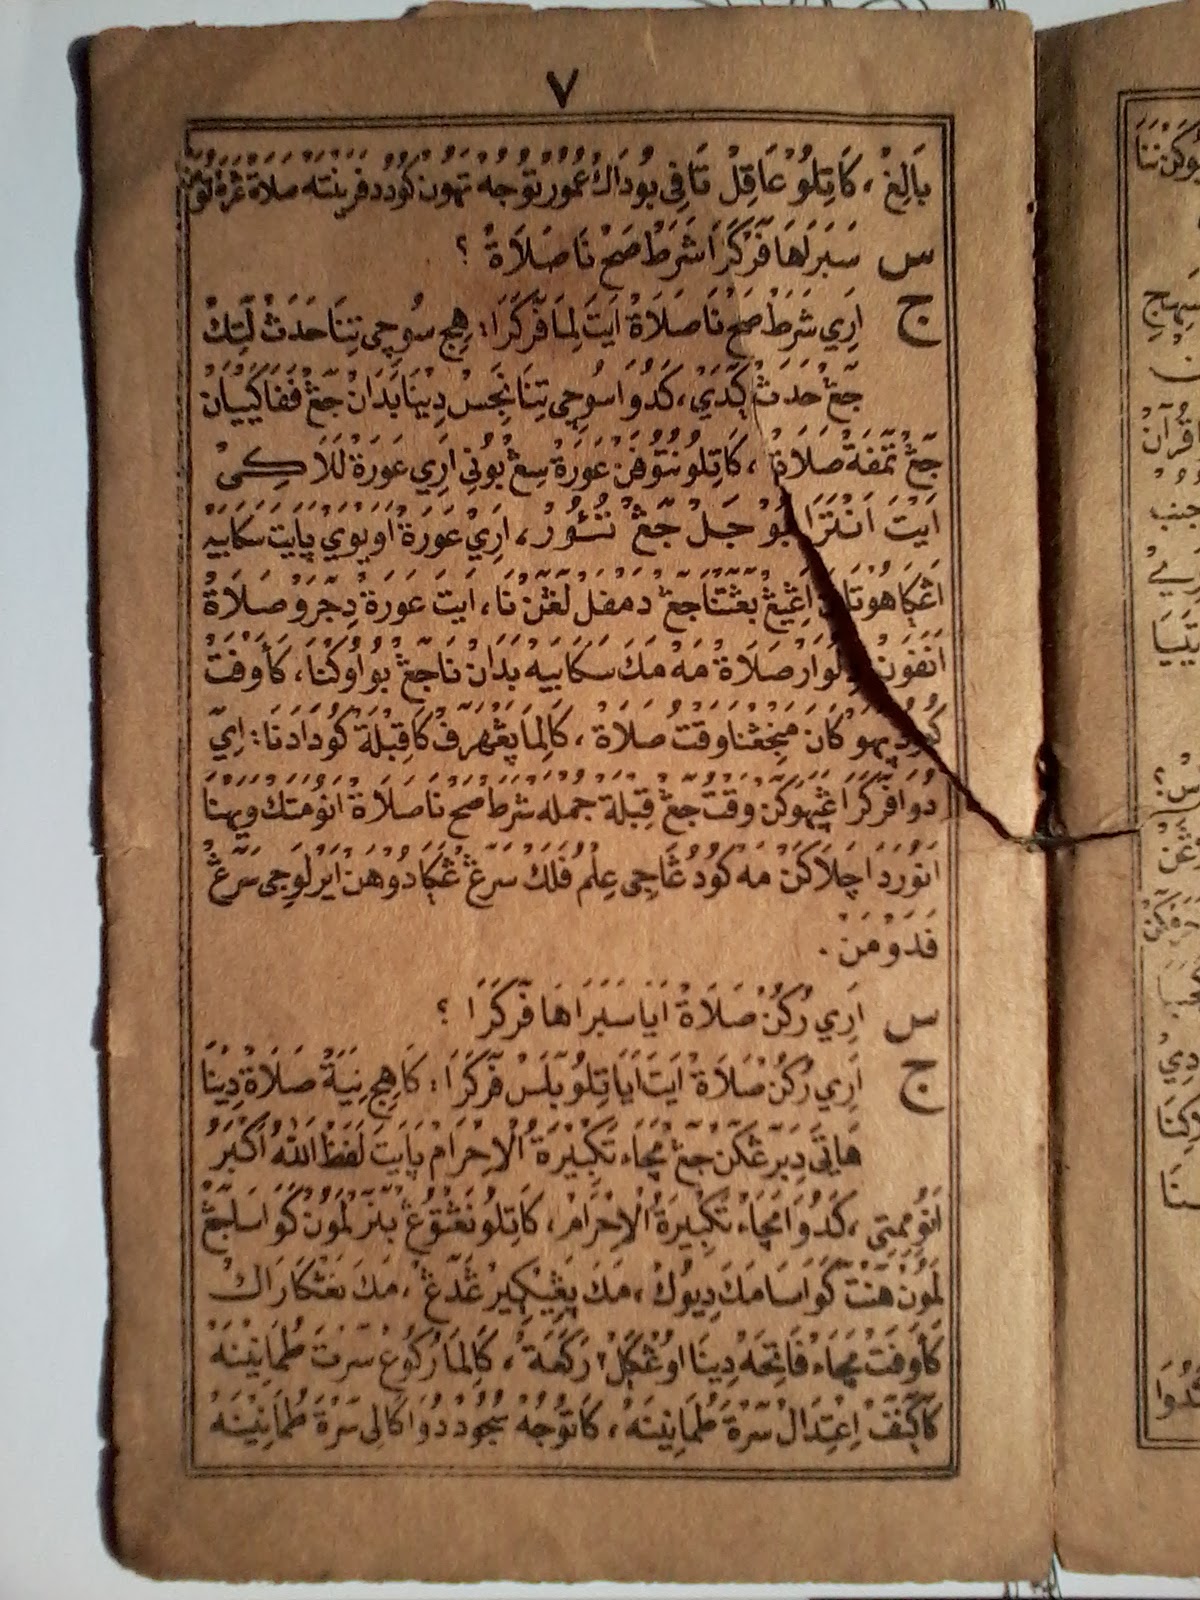 ٧
بَالِغْ، كَاتِلُوْ عَاقِلْ تَافِى بُوْدَاكْ عُمُوْر تُوْجُهْ تَهُوْن كُوْدُ دفرينته صلاة
س سَبَرَاهَا فَرْكَرَا شَرَطْ صَحْ نَا صَلَاةْ ؟
ج اَرِيْ شَرَطْ صَحْ نَا صَلَاةْ اَيْتَ لِمَا فَرْكَرَا: هِجِ سُوْچِى تِيْنَا حَدَثْ لَتِكْ
جَڠْ حَدَثْ ݢَدَيْ، كَدُوَا سُوْچِى تِيْنَا نَجِسْ دِيْنَا بَدَانْ جَڠْ فَفَاكَيْيَانْ
جَڠْ تَمْفَةْ صَلَاةْ، كَاتِلُوْ نُتُوْفَنْ عَوْرَةْ سِڠْ بُوْنِى اَرِيْ عَوْرَةْ لَلَاكِىْ
اَيْتَ اَنْتَرَا بُوْجَلْ جَڠْ تُتُوْرْ، اَرِيْ عَوْرَةْ اَوَيْوَيْ ڽَايْتَ سَكَابَيْهْ
اَڠْݢَاهُوْتَانَا اَڠِيْڠْ بَڠَتْنَا جَڠْ دَمْفَلْ لَڠَنْ نَا، اَيْتَ عَوْرَةْ دِجَرَوْ صَلَاةْ
اَنَفَوْنْ دِلُوَارْ صَلَاةْ مَهْ مَكَ سَكَابَيْهْ بَدَانْ نَا جَڠْ بُوْاُوْكْنَا، كَأَوْفَتْ
كُوْدُ ڽَهَوْكَانْ مَڠْجِڠْنَا وَقْتُ صَلَاةْ، كَالِمَا ڽَڠْهَرَفْ كَا قِبْلَةْ كُوْدَادَنَا: اِيَ
دُوَا فَرْكَرَا ڠَڽَهَوْكَنْ وَقْتُ جَڠْ قِبْلَةْ جُمْلَهْ شَرَطْ صَحْ نَا صَلَاةْ اَنُوْ مَتَكْ وِيْهْنَا
اَنُوْرَدَا چَلَاكَنْ مَهْ كُوْدُ ڠَاجِى عِلْمُ فَلَكْ سَرَڠْ ڠَݢَادُوْهَنْ اَيَرْلَوْجِى سَرَڠْ
فَدَوْمَنْ.
س اَرِيْ رُكُنْ صَلَاةْ اَيَا سَبَرَاهَا فَرْكَرَا ؟
ج اَرِيْ رُكُنْ صَلَاةْ اَيْتَ اَيَا تِلُوْ بَلَسْ فَرْكَرَا: كَاهِجِ نِيَةْ صَلَاةْ دِيْنَا
هَاتَى دِبَرَڠْكَنْ جَڠْ مَچَاءْ تَكْبِيْرَةُ الْاِحْرَامْ ڽَايْتَ لَفَظْ اَللهُ اَكْبَرُ
اَنُوْ مِمِتِى، كَدُوَا مَچَاءْ تَكْبِيْرَةُ الْاِحْرَامْ، كَاتِلُوْ نَڠْتُوْڠْ بَنَرْ لَمُوْنْ كَوَاسَا جَڠْ
لَمُوْنْ هَنْتَ كَوَاسَا مَكَ دِيُوْكْ، مَكَ ڽَڠِيْڠْكِيْرْ ڠَدَڠْ، مَكَ نَڠْكَارَاكْ
كَأَوْفَتْ مَچَاءْ فَاتِحَهْ دِيْنَا اُوْڠْݢَلْ٢ رَكَعَةْ، كَالِمَا رُكُوْعْ سَرْتَ طُمَأْنِيْنَهْ
كَݢَنَفْ اِعْتِدَالْ سَرْتَ طُمَأْنِيْنَهْ، كَاتُوْجُهْ سُجُوْدْ دُوَا كَالِى سَرْتَ طُمَأْنِيْنَهْ